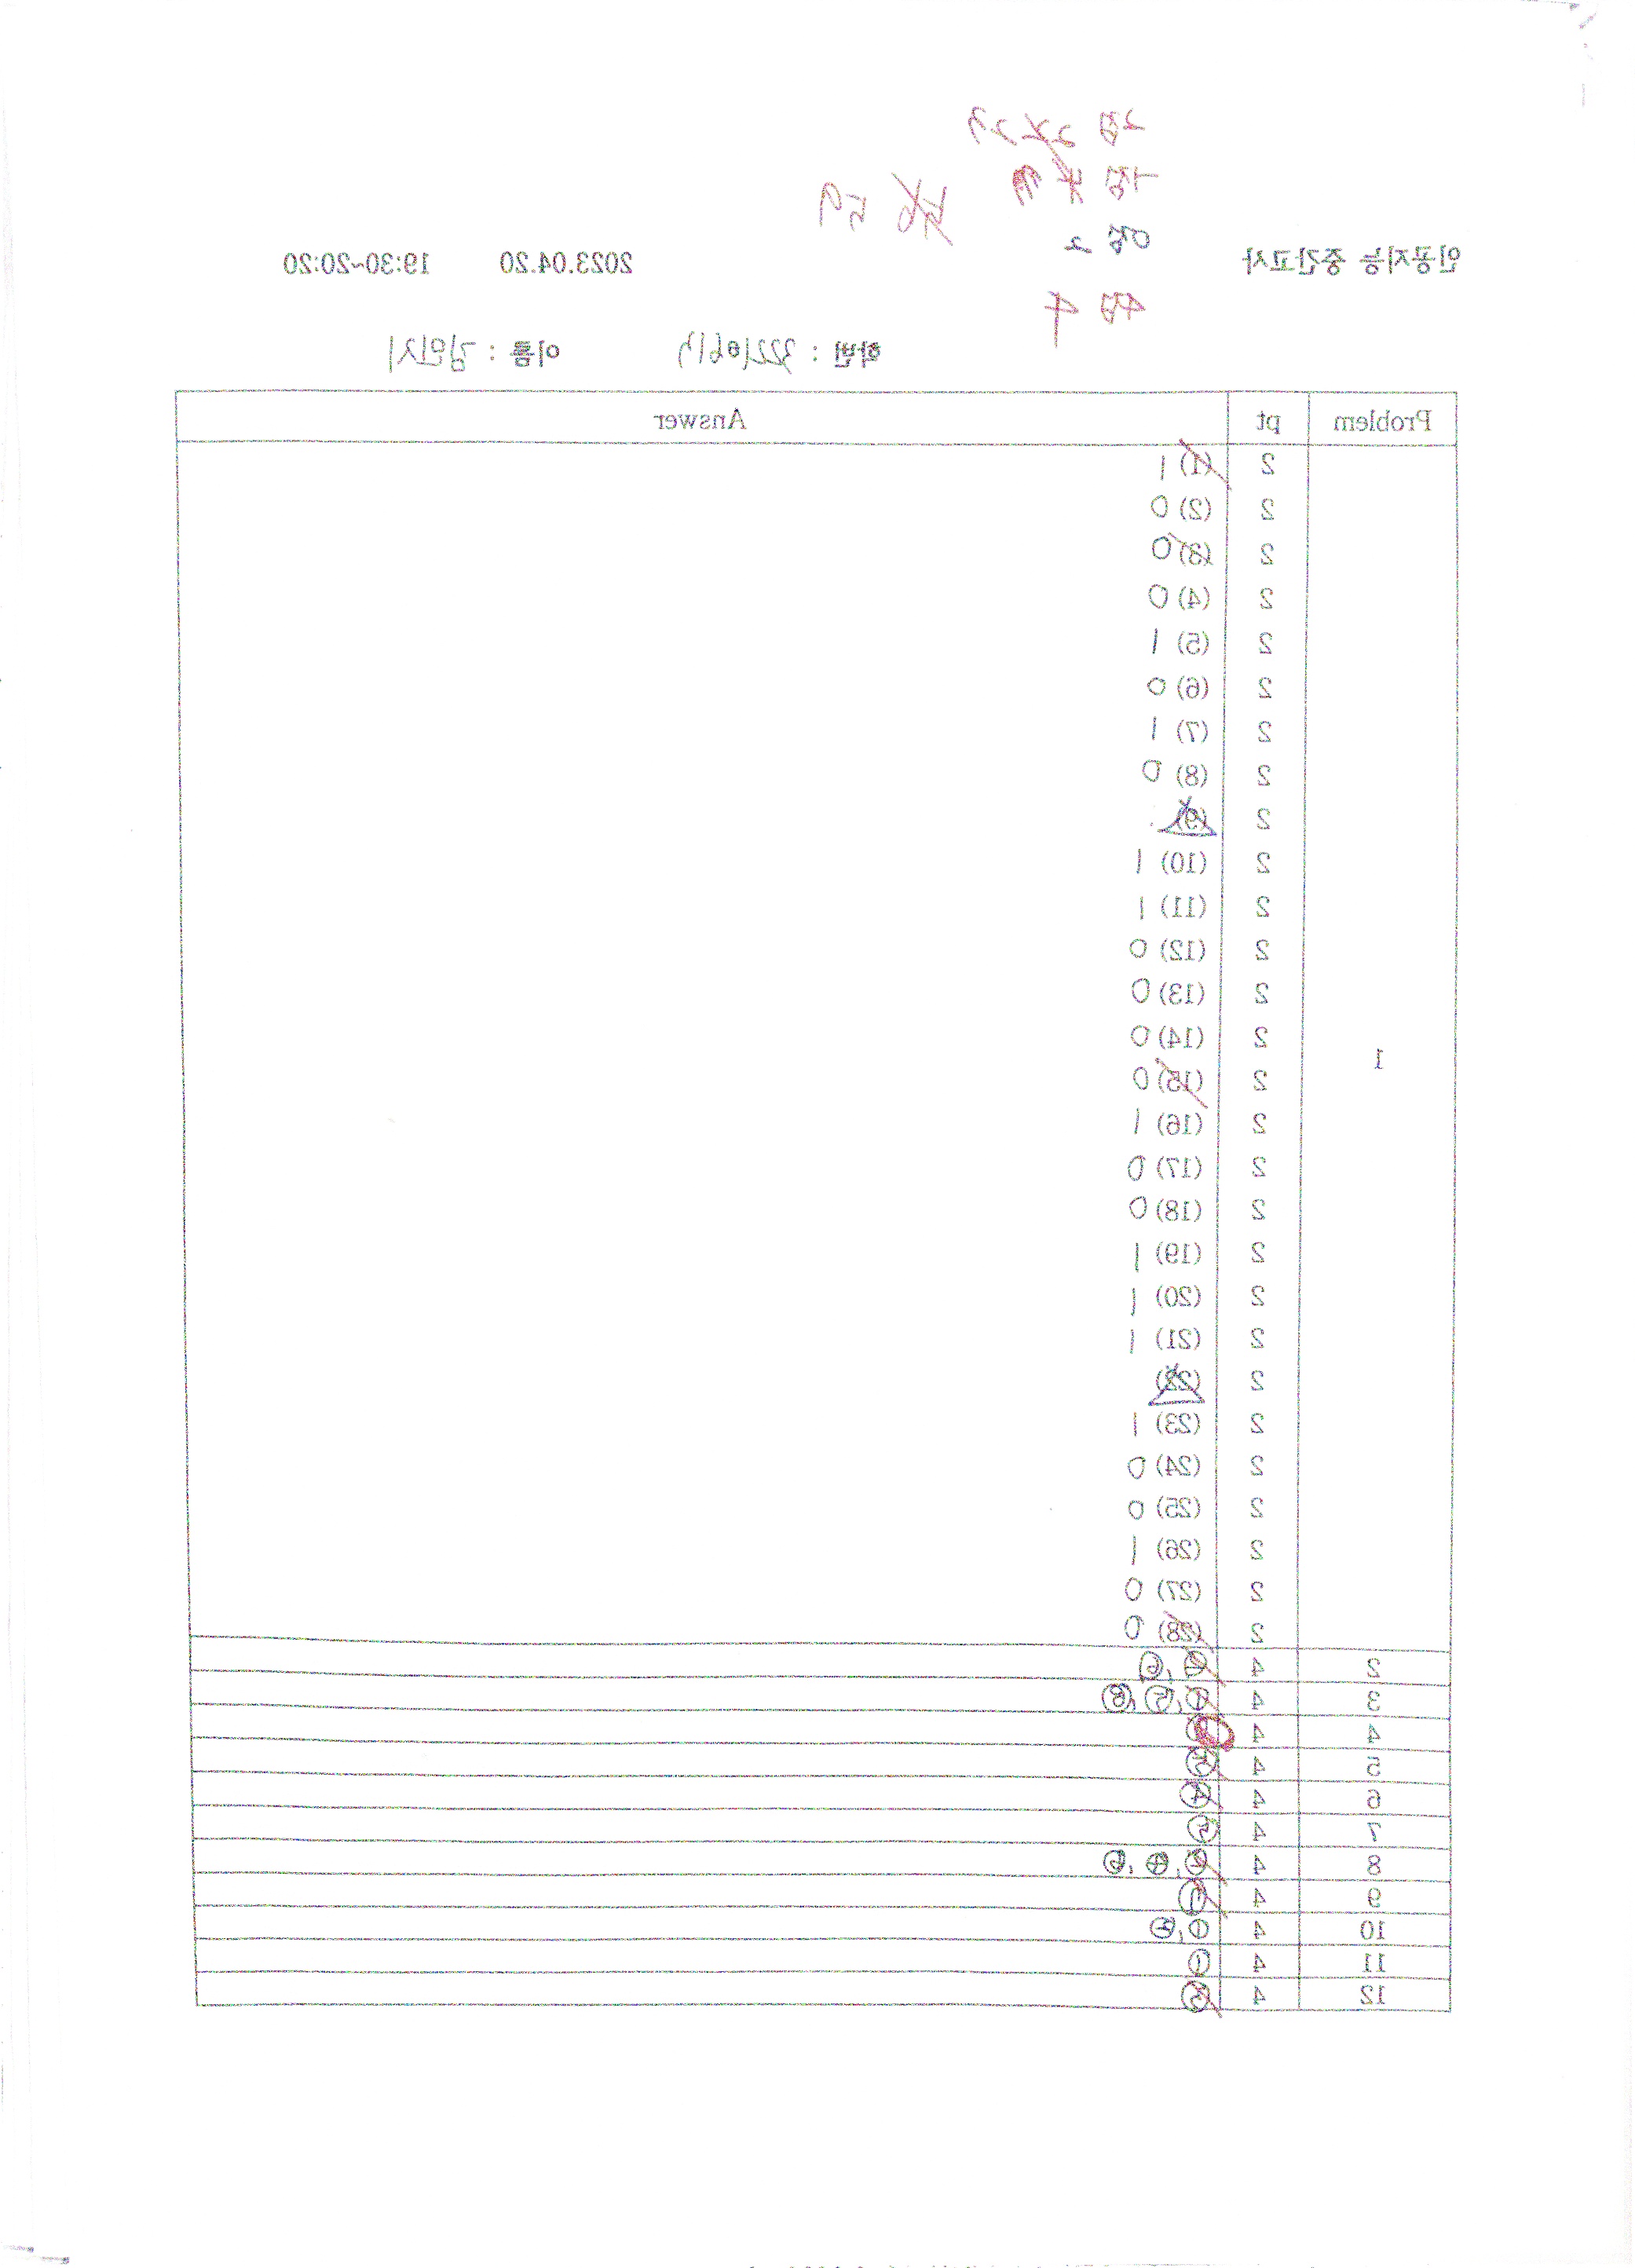 2점
1점
0점 2
인공지능 중간고사 2023.04.20 19:30~20:20
4점 4
학번 : 이름 : 김민지
Problem pt Answer
1
2 (1) 1
2 (2) 0
2 (3) 0
2 (4) 0
2 (5) 1
2 (6) 0
2 (7) 1
2 (8) 0
2 (9)
2 (10) 1
2 (11) 1
2 (12) 0
2 (13) 0
2 (14) 0
2 (15) 0
2 (16) 1
2 (17) 0
2 (18) 0
2 (19) 1
2 (20) 1
2 (21) 1
2 (22)
2 (23) 1
2 (24) 0
2 (25) 0
2 (26) 1
2 (27) 0
2 (28) 0
2 4 ①,⑥
3 4 ①,⑤,⑧
4 4
5 4
6 4 ④
7 4
8 4
9 4 ①
10 4 ①,
11 4 ①
12 4